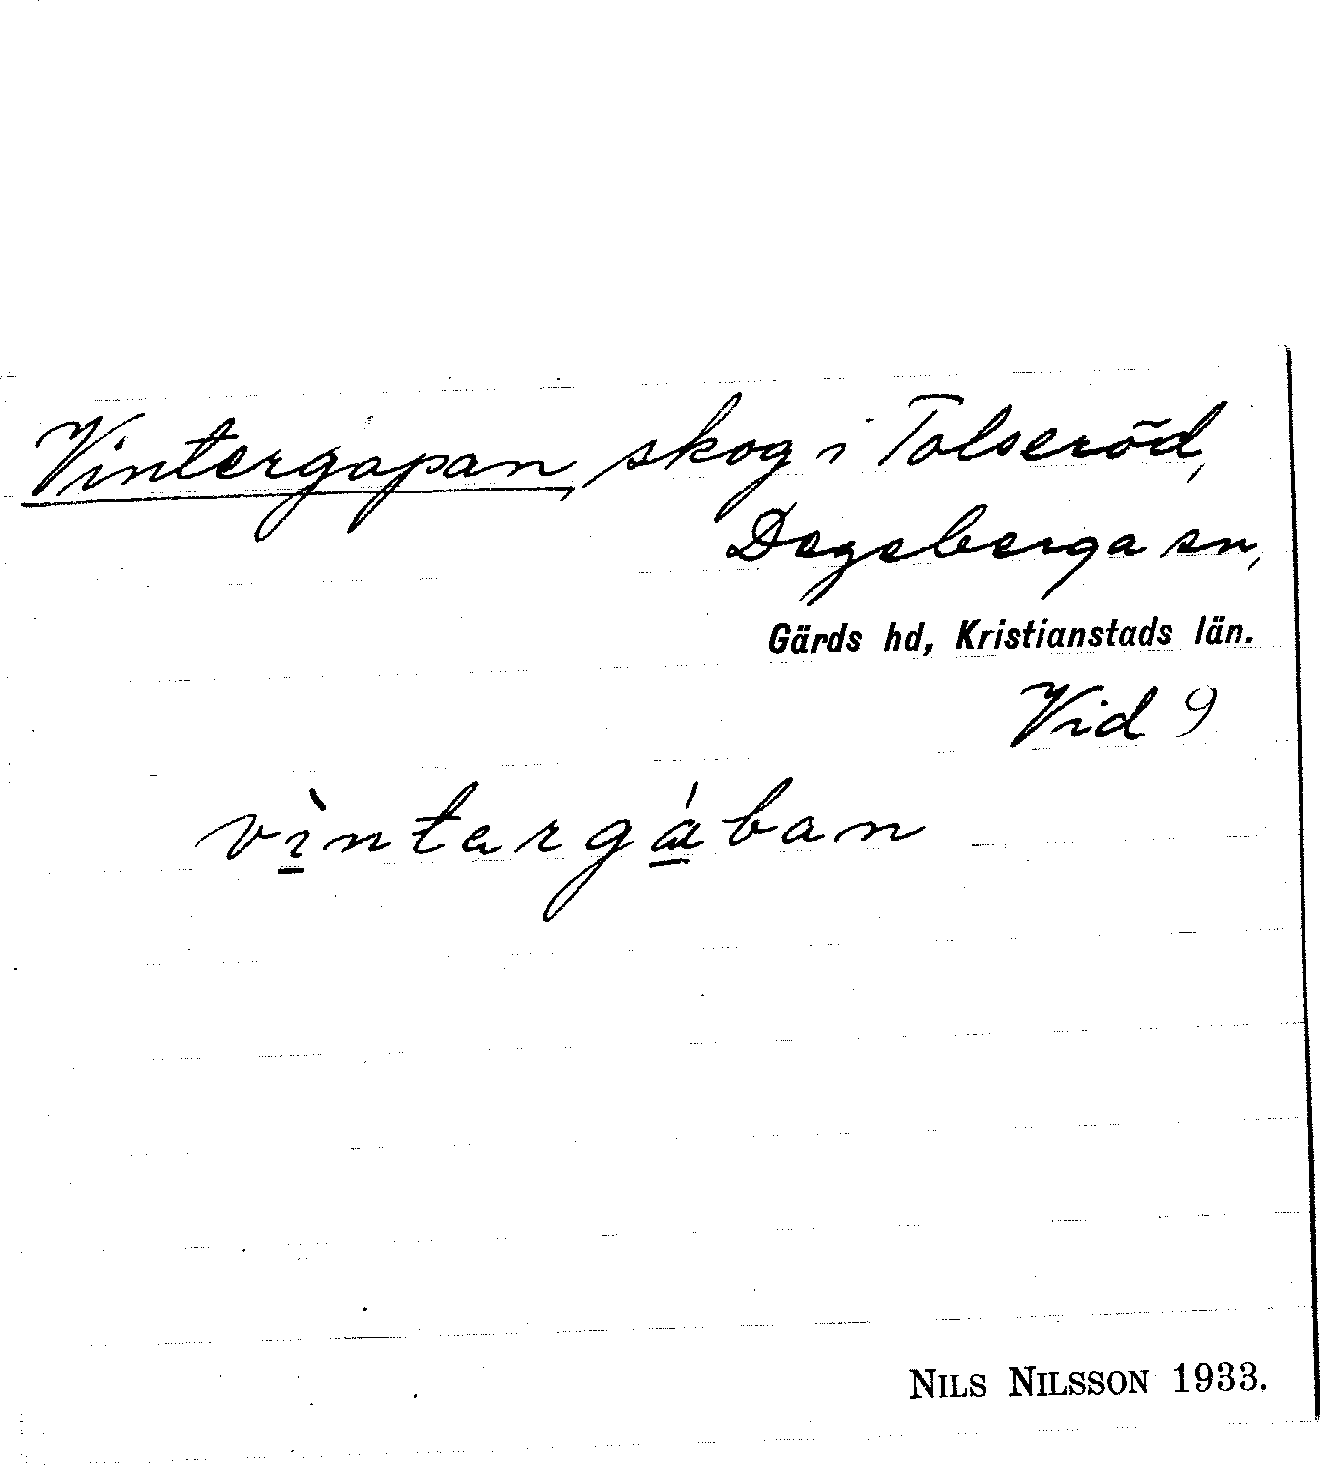 Vintergapan, skog i Tolseröd,
Degeberga sn,
Gärds hd, Kristianstads län.
Vid 9
vìntərgában
NILS NILSSON 1933.